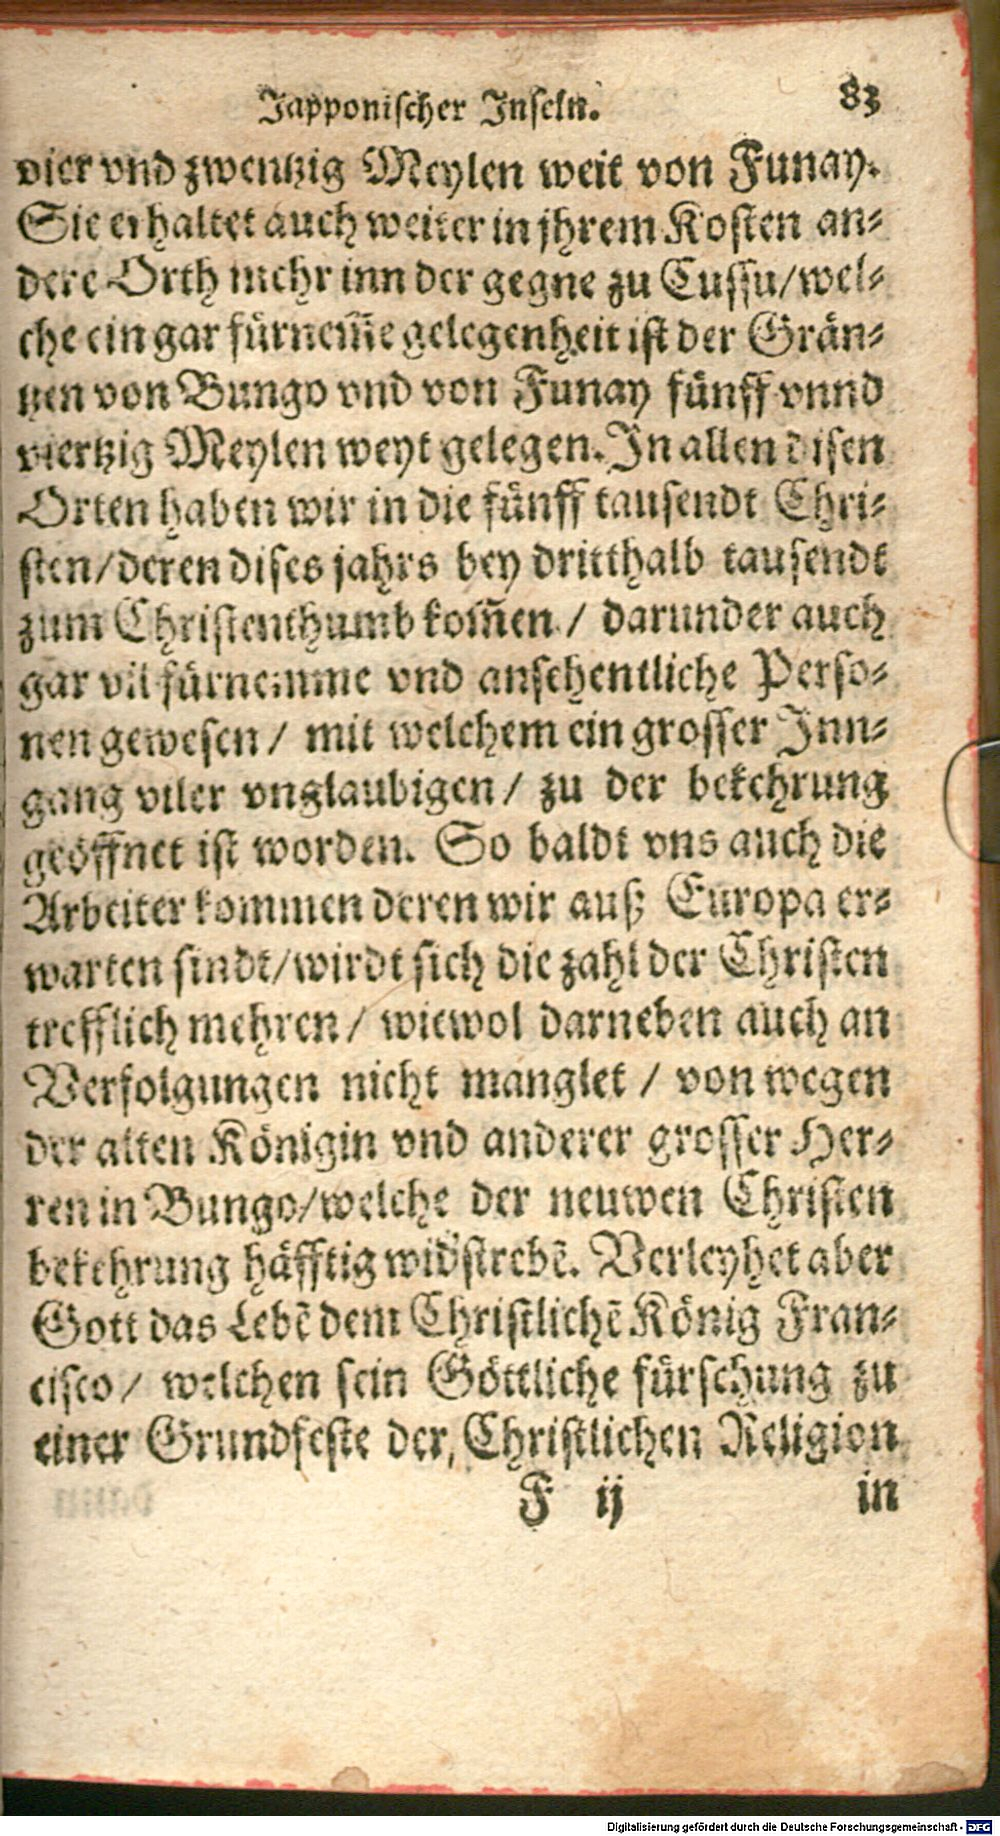 Japponischer Inseln. 83
vier vnd zwentzig Meylen weit von Funay.
Sie erhaltet auch weiter in jhrem Kosten an⸗
dere Orth mehr inn der gegne zu Cussu/wel⸗
che ein gar fürnem̃e gelegenheit ist der Grän⸗
tzen von Bungo vnd von Funay fünff vnnd
viertzig Meylen weyt gelegen. In allen disen
Orten haben wir in die fünff tausendt Chri⸗
sten/deren dises jahrs bey dritthalb tausendt
zum Christenthumb kom̃en / darunder auch
gar vil fürnemme vnd ansehentliche Perso⸗
nen gewesen / mit welchem ein grosser Inn⸗
gang viler vnglaubigen / zu der bekehrung
geöffnet ist worden. So baldt vns auch die
Arbeiter kommen deren wir auß Europa er⸗
warten sindt/wirdt sich die zahl der Christen
trefflich mehren / wiewol darneben auch an
Verfolgungen nicht manglet / von wegen
der alten Königin vnd anderer grosser Her⸗
ren in Bungo/welche der neuwen Christen
bekehrung häfftig wid̓strebẽ. Verleyhet aber
Gott das Lebẽ dem Christlichẽ König Fran⸗
cisco / welchen sein Göttliche fürschung zu
einer Grundfeste der, Christlichen Religion
F ij in
Digitalisierung gefördert durch die Deutsche Forschungsgemeinschaft - DFG